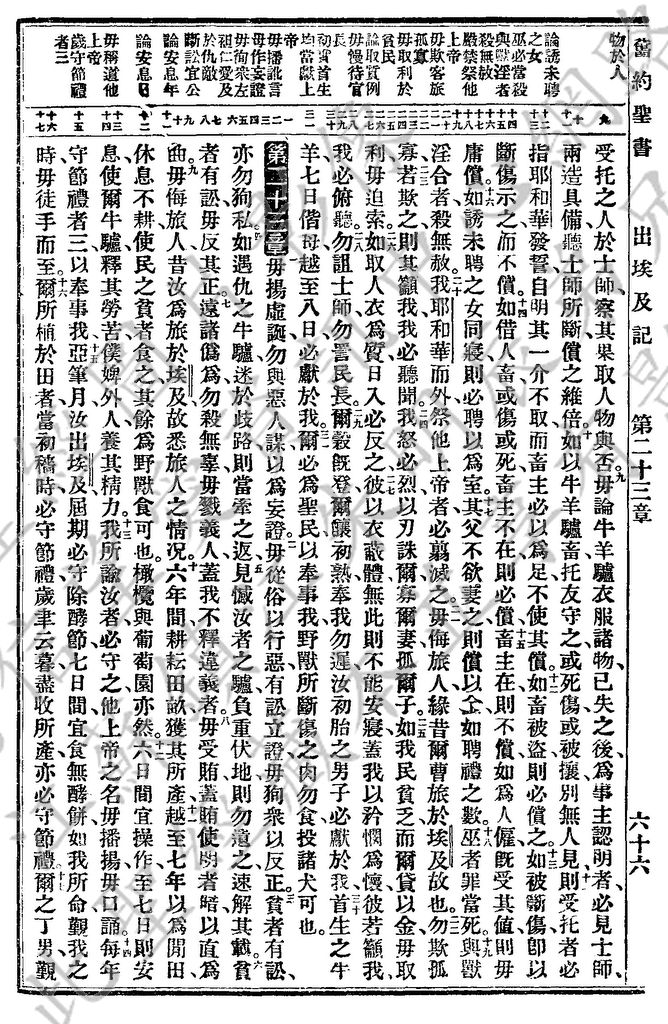 舊約聖書 出埃及記 第二十三章 六十六
物於人
論誘未聘
之女
巫必當殺
與獸淫者
殺無赦
嚴禁祭他
上帝
毋欺客旅
孤寡
毋取利於
貧民
論取質例
毋慢待官
長
初實首生
均當獻上
帝
毋播訛言
毋作妄證
毋徇衆左
袒仁愛及
於仇敵
斷訟宜公
論安息年
論安息日
毋稱道他
上帝
歲守節禮
者三
受托之人於士師、察其果取人物與否。毋論牛羊驢衣服諸物、已失之後、爲事主認明者、必見士師、
兩造具備、聽士師所斷、償之維倍。如以牛羊驢畜托友守之、或死傷、或被攘、別無人見、則受托者必
指耶和華發誓、自明其一介不取、而畜主必以爲足、不使其償。如畜被盜、則必償之。如被斷傷、卽以
斷傷示之、而不償。如借人畜、或傷或死、畜主不在則必償。畜主在、則不償。如爲人僱、旣受其值、則毋
庸償。如誘未聘之女同寢、則必聘以爲室。其父不欲妻之、則償以金、如聘禮之數。巫者罪當死。與獸
淫合者、殺無赦。我耶和華而外、祭他上帝者、必翦滅之。毋侮旅人、緣昔爾曹旅於埃及故也。勿欺孤
寡、若欺之、則其籲我、我必聽聞。我怒必烈、以刃誅爾、寡爾妻、孤爾子。如我民貧乏、而爾貸以金、毋取
利、毋迫索。如取人衣爲質、日入必反之、彼以衣蔽體、無此則不能安寢、蓋我以矜憫爲懷、彼若籲我、
我必俯聽。勿詛士師、勿詈民長。爾穀旣登、爾釀初熟、奉我勿遲、汝初胎之男子、必獻於我。首生之牛
羊、七日偕母、越至八日、必獻於我。爾必爲聖民以奉事我、野獸所斷傷之肉勿食、投諸犬可也。
第二十三章 毋揚虛誕、勿與惡人謀、以爲妄證。毋從俗以行惡、有訟立證、毋狥衆以反正。貧者有訟、
亦勿狥私。如遇仇之牛驢、迷於歧路、則當牽之返。見憾汝者之驢、負重伏地、則勿道之、速解其載。貧
者有訟、毋反其正。遠諸僞爲、勿殺無辜、毋戮義人、蓋我不釋違義者。毋受賄、蓋賄使明者暗、以直爲
曲。毋侮旅人、昔汝爲旅於埃及、故悉旅人之情況。六年間耕耘田畝、獲其所產、越至七年、以爲閒田、
休息不耕、使民之貧者食之、其餘爲野獸食可也、橄欖與葡萄園亦然。六日間宜操作、至七日則安
息、使爾牛驢釋其勞苦、僕婢外人養其精力。我所諭汝者、必守之、他上帝之名、毋播揚、毋口誦。每年
守節禮者三、以奉事我。亞筆月、汝出埃及、屆期必守除酵節、七日間宜食無酵餅、如我所命、覲我之
時、毋徒手而至。爾所植於田者、當初穡時、必守節禮、歲聿云暮、盡收所產、亦必守節禮。爾之丁男、覲